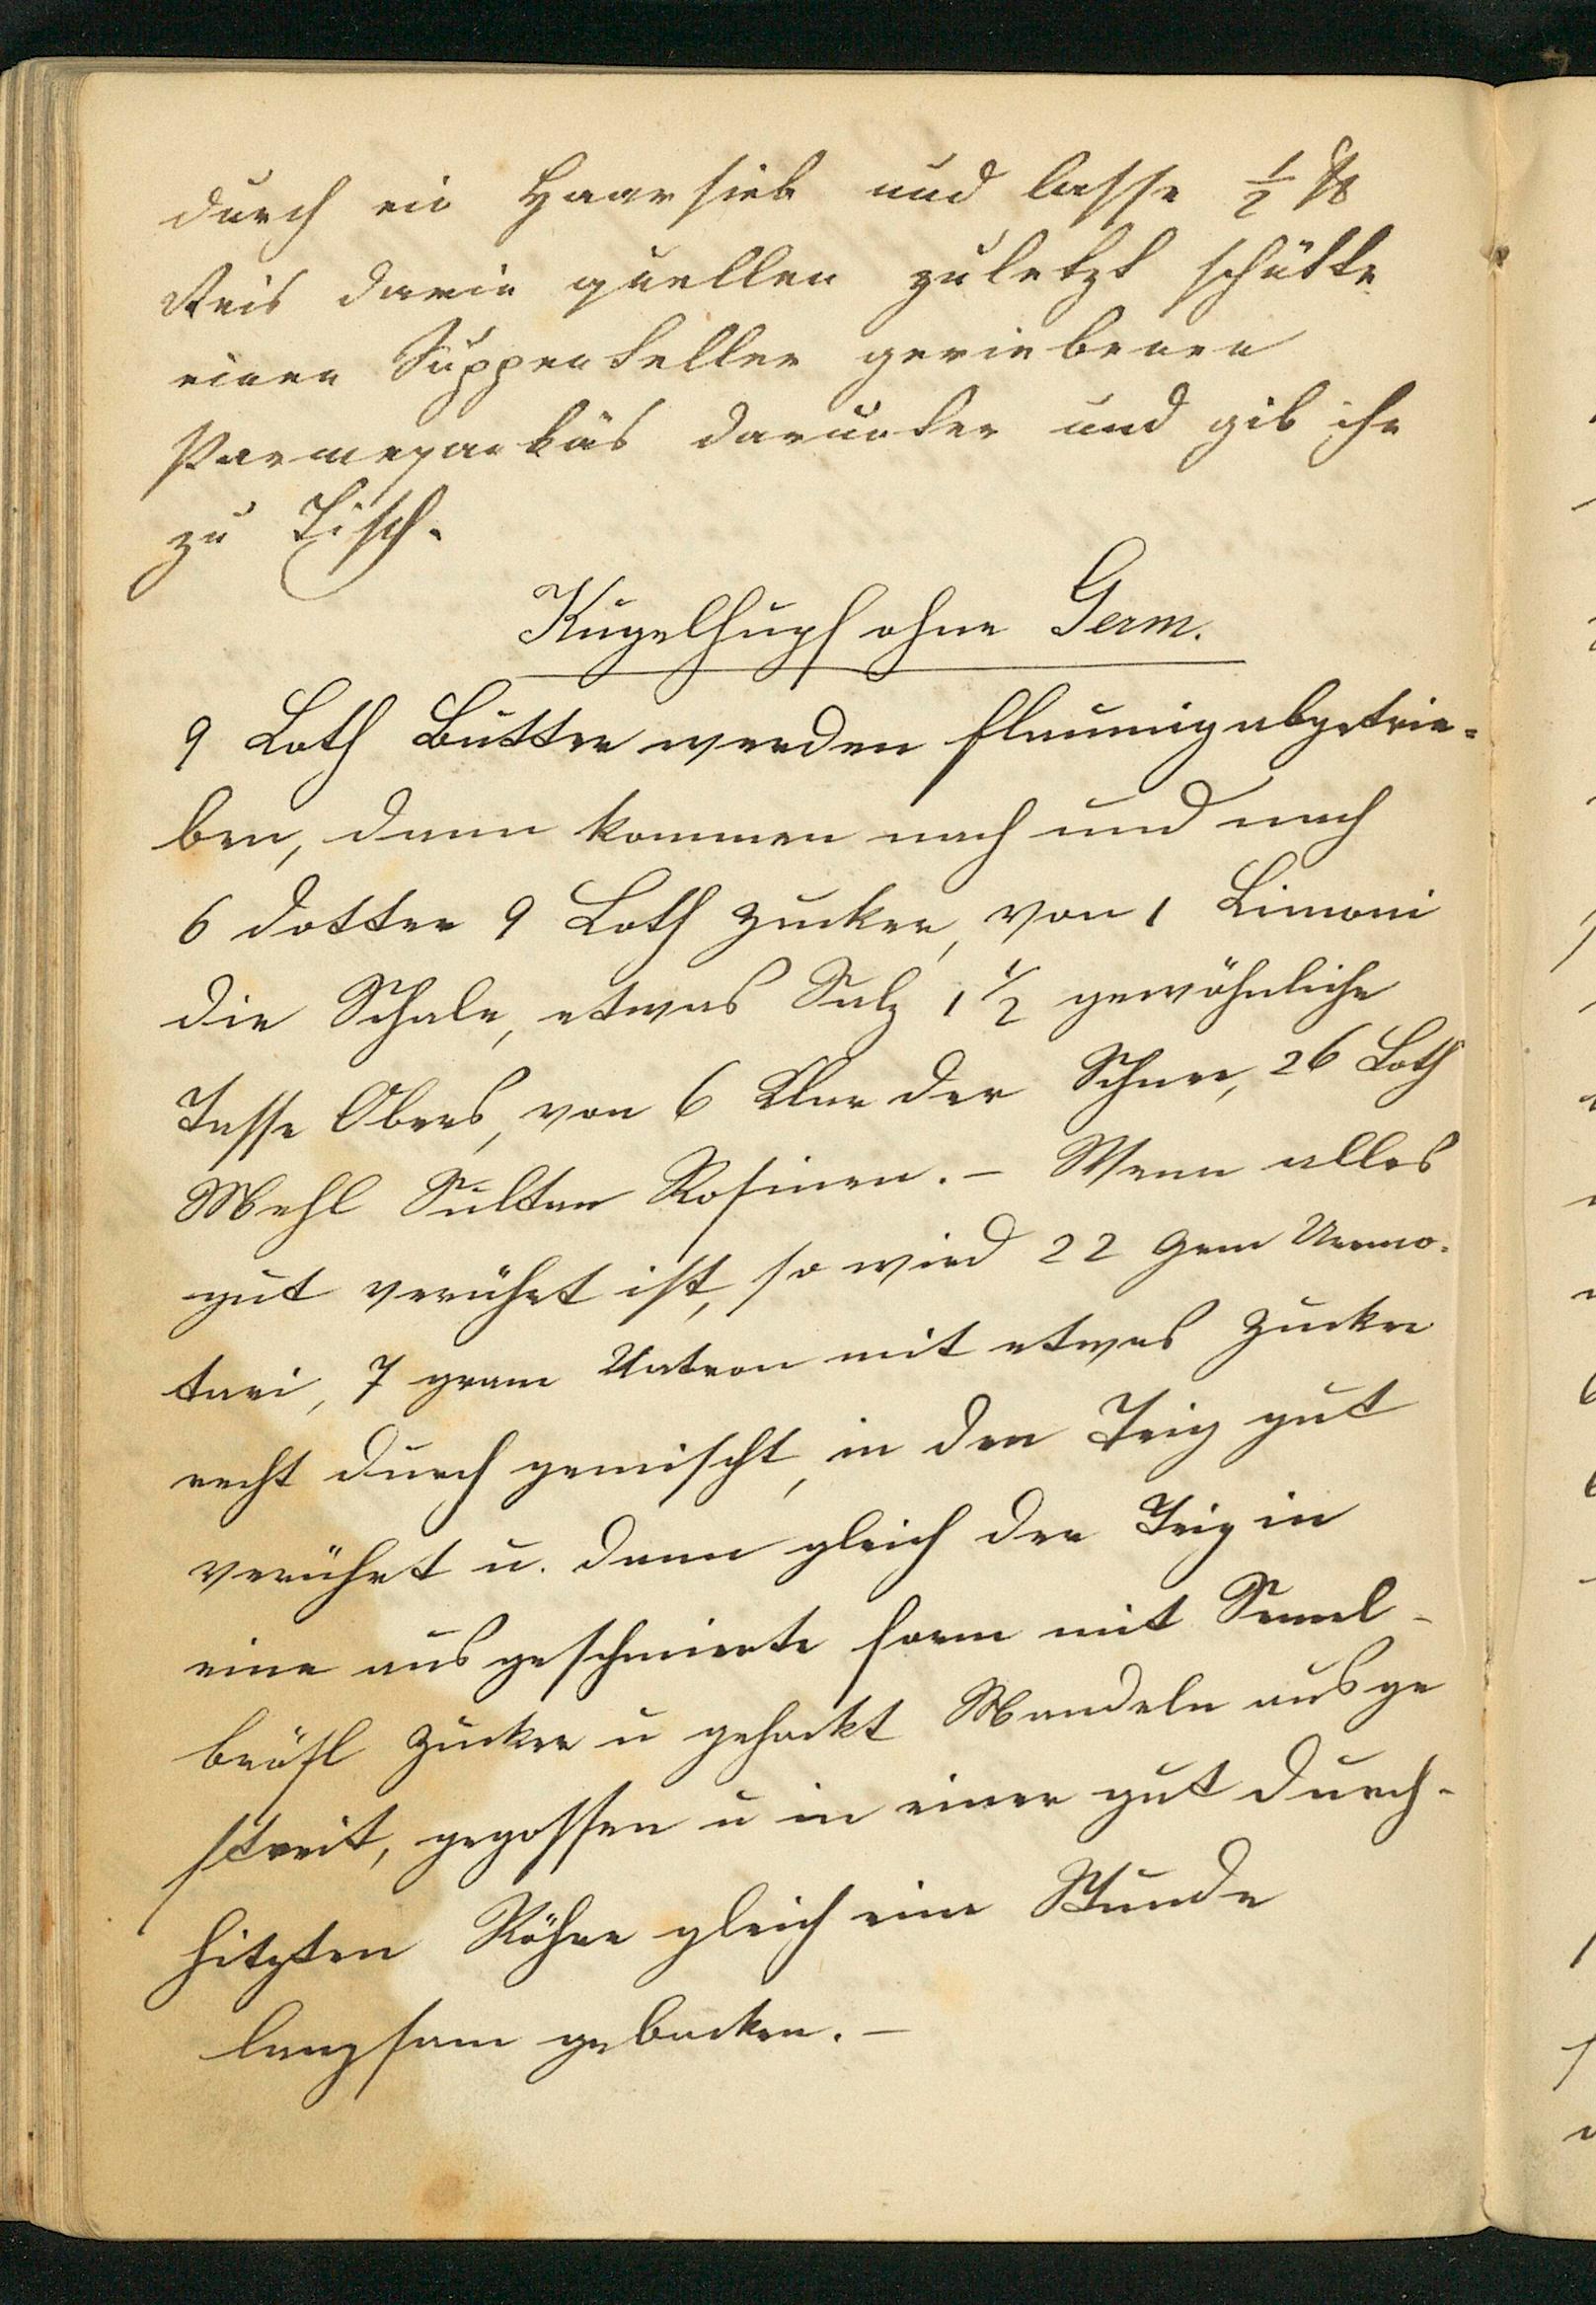 durch ein Haarsieb und lasse ½ ℔
Reis darin quellen zuletzt schütte
einen Suppenteller geriebenen
Parmesankäs darunter und gib ihn
zu Tisch.
Kugelhupf ohne Germ.
9 Loth Butter werden flaumig abgetrie-
ben, dann kommen nach und nach
6 Dotter 9 Loth Zucker, von 1 Limoni
die Schale, etwas Salz 1 ½ gewöhnliche
Tasse Obers, von 6 Klar der Schnee, 26 Loth
Mehl Sultan Rosinen. – Wenn alles
gut verührt ist, so wird 22 Gram
7 gram Natron mit etwas Zucker
recht durch gemischt, in den Teig gut
verührt u. dann gleich der Teig in
eine ausgeschmierte Form mit Semel-
brösl Zucker u gehackt Mandeln ausge
streit, gegossen u in einer gut durch-
hitzten Röhre gleich eine Stunde
langsam gebacken. –